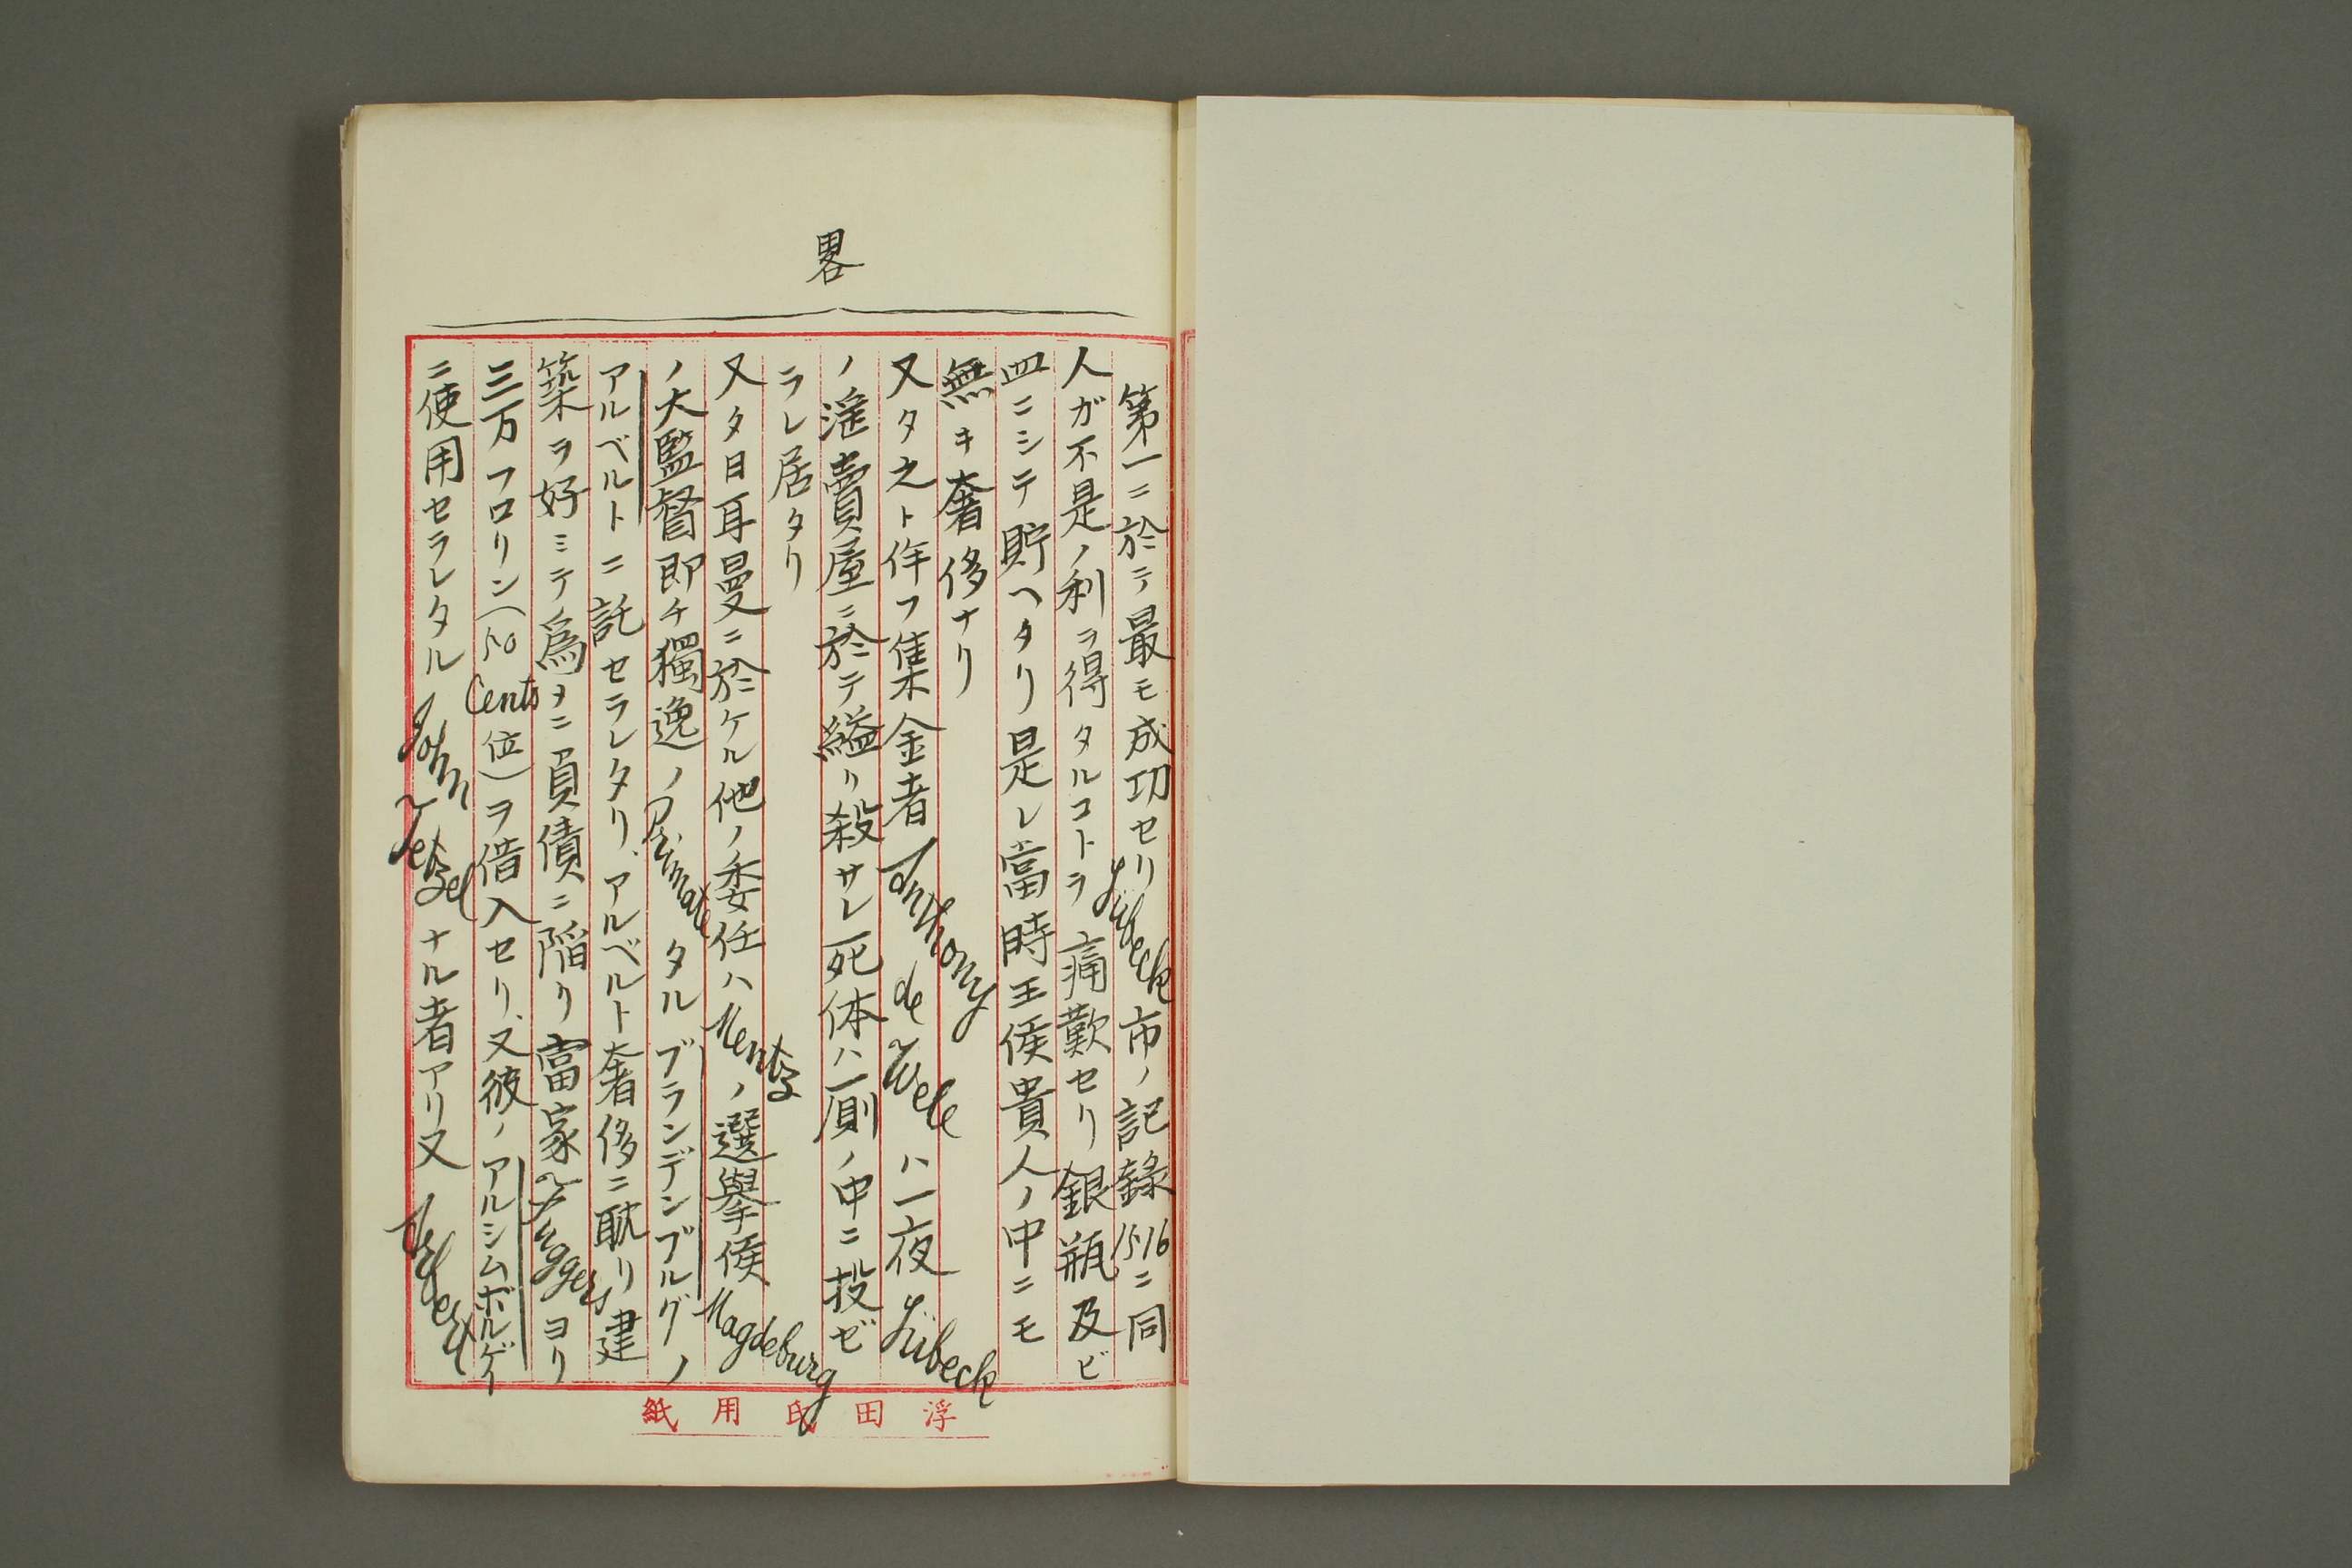 畧
第一ニ於テ最モ成功セリLübeck市ノ記錄1516ニ同
人ガ不是ノ利ヲ得タルコトヲ痛歎セリ銀瓶及ビ
皿ニシテ貯ヘタリ是レ當時王侯貴人ノ中ニモ
無キ奢侈ナリ
又タ之ト伴フ集金者Anthony de Wele ハ一夜Lübeck
ノ淫賣屋ニ於テ縊リ殺サレ死体ハ厠ノ中ニ投ゼ
ラレ居タリ
又タ日耳曼ニ於ケル他ノ委任ハMentzノ選擧侯Magdeburg
ノ大監督即チ獨逸ノPrimateタルブランデンブルグノ
アルベルトニ託セラレタリ、アルベルト奢侈ニ耽リ建
築ヲ好ミテ為メニ負債ニ陥リ富家Fuggersヨリ
三万フロリン(50 Cents位)ヲ借入セリ、又彼ノアルシムボルヂー
ニ使用セラレタルJohn Tetzelナル者アリ又
浮田氏用紙